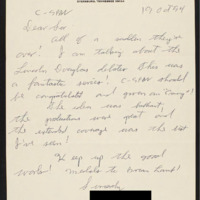 C-SPAN 19 Oct 94
Dear Sir
All of a sudden they're
over! I am talking about the
Lincoln Douglas debates. This was
a fantastic series! C-SPAN should
be congratulated and given an
The idea was brilliant;
the productions were great and
the extended coverage was the best
I've seen!
Keep up the good
work!
Sincerely,